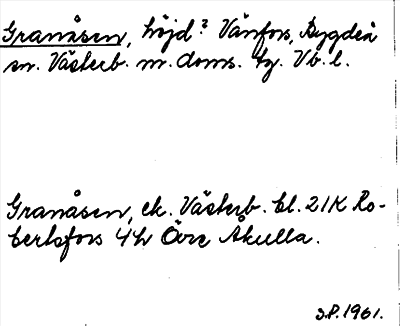 Granåsen, höjd? Vänfors, Bygdeå
sn. Västerb. m. doms. tg. Vb. l.
Granåsen, ek. Västerb. bl. 21K Ro-
bertsfors 4h Övre Åkulla.
S.P. 1961.